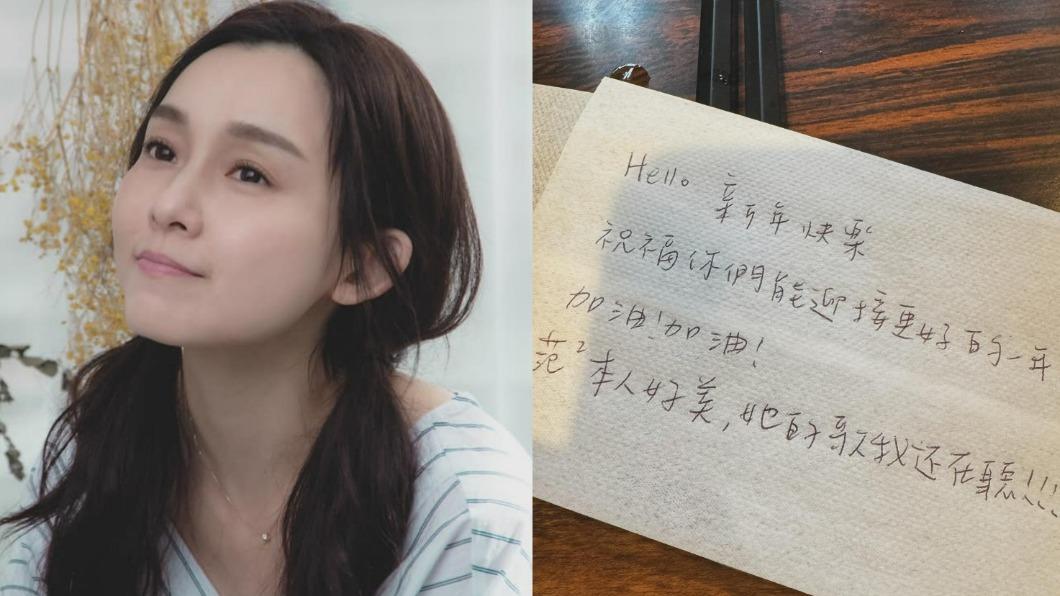 Hello 新年快樂
祝福你們能迎接更好的一年
加油!加油!
范² 本人好美,她的歌我还在聽!!!